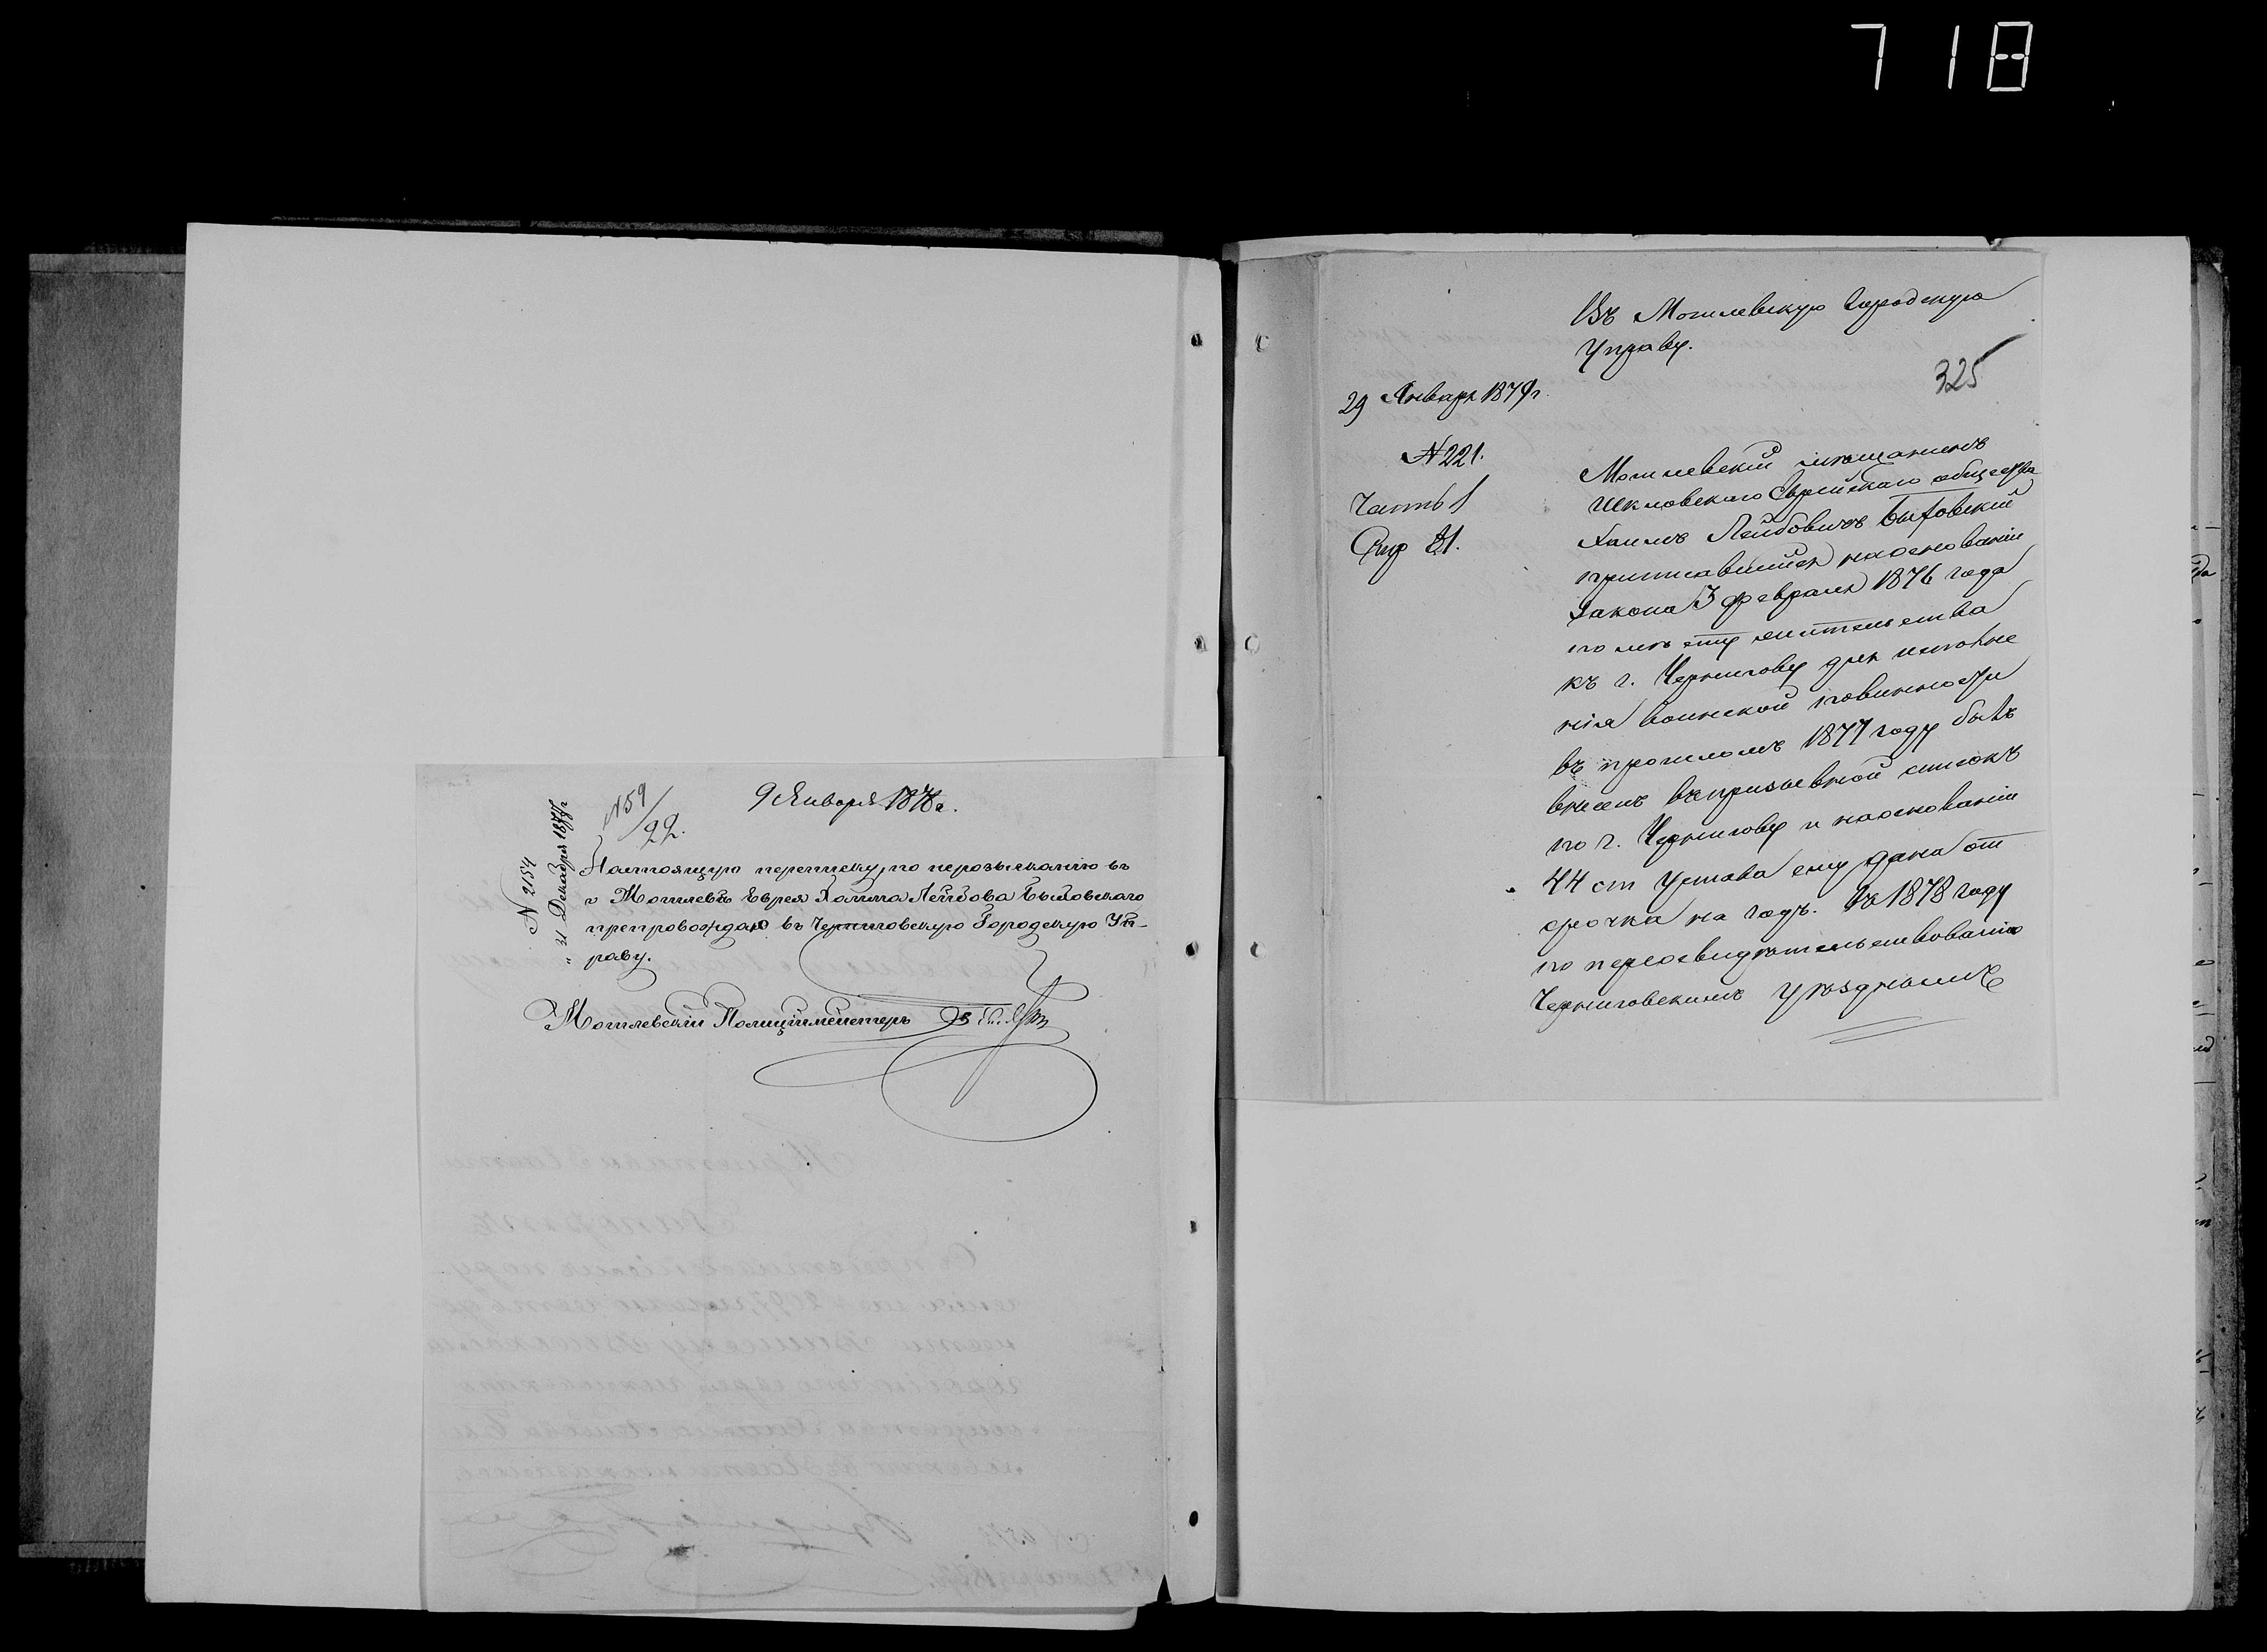 718
9 Января 1878 г.
N 59/22.
N 2154
" 31 Декабря 1877 г
Настоящую переписку, по нерозысканію въ
г Могилевѣ Еврея Хаима Лейбова Быховскаго
препровождаю въ Черниговскую Городскую Уп-
раву.
Могилевскій Полиціймейстеръ
Въ Могилевскую Городскую
Управу.
325
29 Января 1879 г.
N 221.
Часть 1
Могилевскій мѣщанинъ
Шкловскаго Еврейскаго общества
Хаимъ Лейбовичъ Быховскій
приписавшійся на основаніи
Закона 3 февраля 1876 года
по мѣсту жительства
къ г. Чернигову для исполне
нія воинской повинности
въ прошломъ 1877 году былъ
внесенъ въ призывной списокъ
по г. Чернигову и на основаніи
44 ст Устава ему дана от
срочка на годъ. Въ 1878 году
по переосвидѣтельствованію
Черниговскимъ Уѣзднымъ